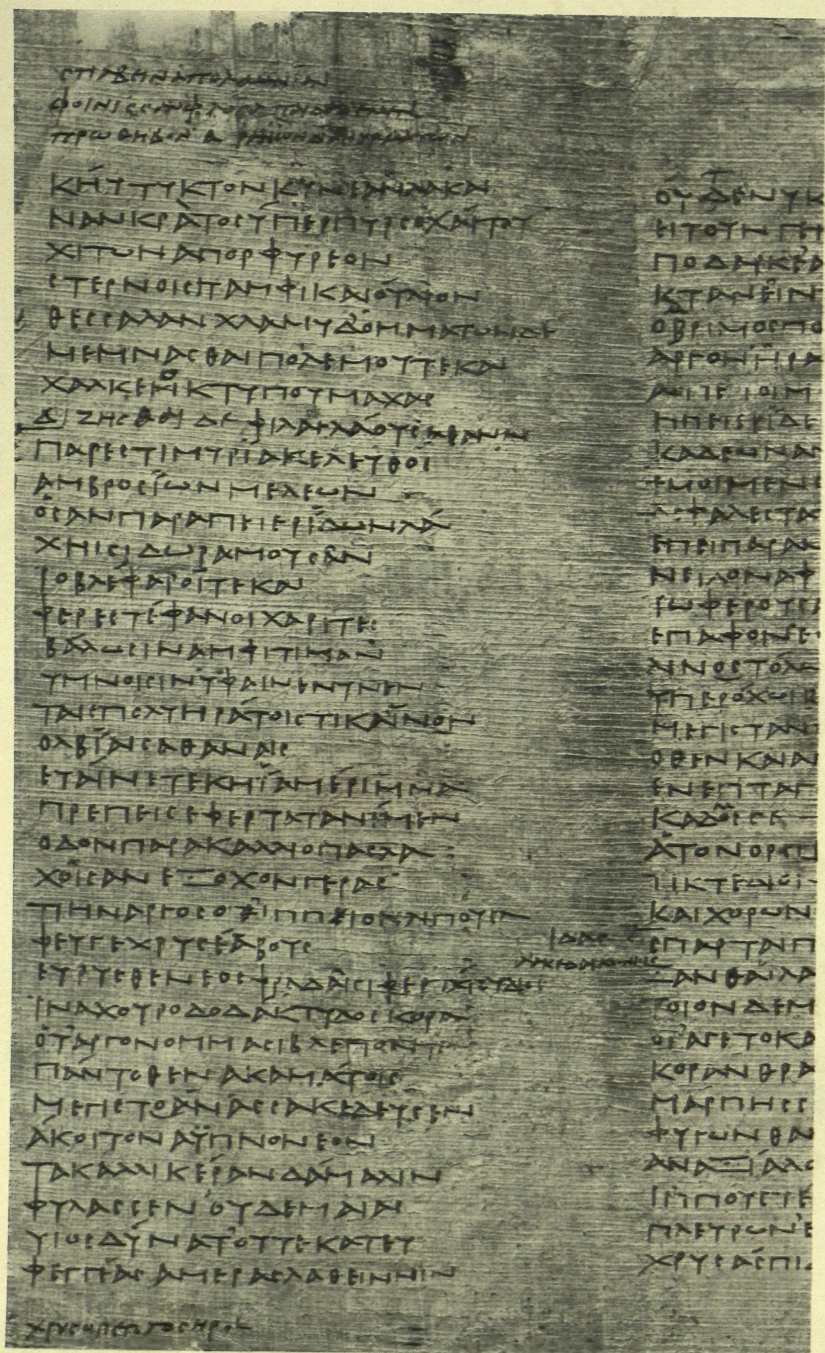 ϹΤΙΛΒΕΙΝΑΠΟΛΑΜΝΙΑΝ
ΦΟΙΝΙϹϹΑΝΦΛΟΓΑΠΑΙΔΑΔΕΜΜΕΝ
ΠΡΩΘΗΒΟΝΑΡΗΙΩΝΔΑΘΥΡΜΑΤΩΝ
ΚΗΥΤΥΚΤΟΝΚΥΝΕΑΝΛΑΚΑΙ
ΝΑΝΚΡΑΤΟϹΥΠΕΡΠΥΡϹΟΧΑΙΤΟΥ
ΧΙΤΩΝΑΠΟΡΦΥΡΕΟΝ
ϹΤΕΡΝΟΙϹΤΑΜΦΙΚΑΙΟΥΛΙΟΝ
ΘΕϹϹΑΛΑΝΧΛΑΜΥΔΟΜΜΑΤΩΝΔΕ
ΜΕΜΝΑϹΘΑΙΠΟΛΕΜΟΥΤΕΚΑΙ
ΧΑΛΚΕΟΚΤΥΠΟΥΜΑΧΑϹ
ΔΙΖΗϹΘΑΙΔΕΦΙΛΑΓΛΑΟΥϹΑΘΑΝΑϹ
ΠΑΡΕϹΤΙΜΥΡΙΑΚΕΛΕΥΘΟϹ
ΑΜΒΡΟϹΙΩΝΜΕΛΕΩΝ
ΟϹΑΝΠΑΡΑΠΕΙΕΡΙΔΩΝΛΑ
ΧΗΙϹΙΔΩΡΑΜΟΥϹΑΝ
ΙΟΒΛΕΦΑΡΟΙΤΕΚΑΙ
ΦΕΡΕϹΤΕΦΑΝΟΙΧΑΡΙΤΕϹ
ΒΑΛΩϹΙΝΑΜΦΙΤΙΜΑΝ
ΥΜΝΟΙϹΙΝΥΦΑΙΝΕΝΥΝΕΝ
ΤΑΙϹΠΟΛΥΗΡΑΤΟΙϹΤΙΚΑΙΝΟΝ
ΟΛΒΙΑΙϹΑΘΑΝΑΙϹ
ΕΥΑΙΝΕΤΕΚΗΪΑΜΕΡΙΜΝΑ
ΠΡΕΠΕΙϹΕΦΕΡΤΑΤΑΝΙΜΕΝ
ΟΔΟΝΠΑΡΑΚΑΛΛΙΟΠΑϹΛΑ
ΧΟΙϹΑΝΕΞΟΧΟΝΓΕΡΑϹ
ΤΙΗΝΑΡΓΟϹΟΘΙΠΠΙΟΝΛΙΠΟΥϹΑ
ΦΕΥΓΕΧΡΥϹΕΑΒΟΥϹ
ΕΥΡΥϹΘΕΝΕΟϹΦΡΑΔΑΙϹΙΦΕΡΤΑΤΟΥΔΙΟϹ
ΪΝΑΧΟΥΡΟΔΟΔΑΚΤΥΛΟϹΚΟΡΑ
ΟΤΑΡΓΟΝΟΜΜΑϹΙΒΛΕΠΟΝΤΑ
ΠΑΝΤΟΘΕΝΑΚΑΜΑΤΟΙϹ
ΜΕΓΙϹΤΟΑΝΑϹϹΑΚΕΛΕΥϹΕΝ
ΑΚΟΙΤΟΝΑΫΠΝΟΝΕΟΝ
ΤΑΚΑΛΛΙΚΕΡΑΝΔΑΜΑΛΙΝ
ΦΥΛΑϹϹΕΝΟΥΔΕΜΑΙΑϹ
ΥΙΟϹΔΥΝΑΤΟΥΤΕΚΑΤΕΥ
ΦΕΓΓΕΑϹΑΜΕΡΑϹΛΑΘΕΙΝΝΙΝ
ΧΡΥϹΟΠΕΠΛΟϹΗΡΑ
ΕΙΤΟΥΝΓΕ
ΠΟΔΑΡΚΕΑ
ΚΤΑΝΕΙΝ
ΟΒΡΙΜΟϹΠΟ
ΑΡΓΟΝΗΡΑ
ΚΑΔΕΩΝΑΝ
ΕΜΟΙΜΕΝ
ΑϹΦΑΛΕϹΤΑ
ΕΠΕΙΠΑΡΑΝ
ΝΕΙΛΟΝΑΦ
ΙΩΦΕΡΟΥϹΑ
ΕΠΑΦΟΝΕ
ΛΙΝΟϹΤΟΛΩ
ΥΠΕΡΟΧΩΙΒ
ΜΕΓΙϹΤΑΝ
ΟΘΕΝΚΑΙΑ
ΕΝΕΠΤΑΠ
ΚΑΔΜΟϹϹΕ
ΑΤΟΝΟΡϹΙ
ΤΙΚΤΕΔΙΟ
ΚΑΙΧΟΡΩΝ
ΙΔΑϹ
ΛΑΚΕΔΑΙΜΟΝΙΟΙϹ
ϹΠΑΡΤΑΙΠ
ΞΑΝΘΑΙΛΑ
ΤΟΙΟΝΔΕΜ
ΟΤΑΓΕΤΟΚΑ
ΚΟΡΑΝΘΡΑ
ΜΑΡΠΗϹϹ
ΦΥΓΩΝΘΑ
ΑΝΑΞΙΑΛΟ
ΙΠΠΟΥϹΤΕ
ΠΛΕΥΡΩΝΕ
ΧΡΥϹΑϹΠΙ